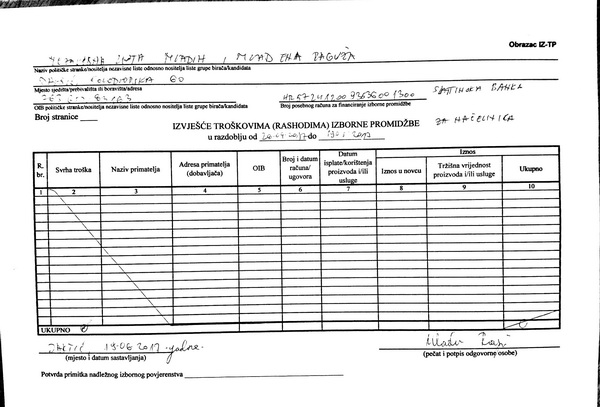 Obrazac IZ-TP
NEZAVISNA LISTA MLADIH I
Naziv političke stranke/nositelja nezavisne liste odnosno nositelja liste grupe birača/kandidata
60
Mjesto sjedišta/prebivališta ili boravišta/adresa
SPLITSKA BANKA
OIB političke stranke/nositelja nezavisne liste odnosno nositelja liste grupe birača/kandidata
Broj posebnog računa za financiranje izborne promidžbe
Broj stranice
ZA NAČELNIKA
IZVJEŠĆE TROŠKOVIMA (RASHODIMA) IZBORNE PROMIDŽBE
u razdoblju od do
R. br. Svrha troška Naziv primatelja Adresa primatelja (dobavljača) OIB Broj i datum računa/ugovora Datum isplate/korištenja proizvoda i/ili usluge Iznos
Iznos u novcu Tržišna vrijednost proizvoda i/ili usluge Ukupno
1 2 3 4 5 6 7 8 9 10
UKUPNO
19.06.2017. godine
(mjesto i datum sastavljanja)
(pečat i potpis odgovorne osobe)
Potvrda primitka nadležnog izbornog povjerenstva